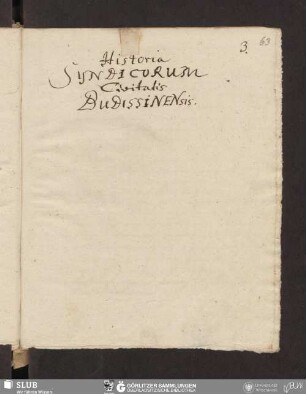 3. 63
Historia
SYNDICORUM
Civitatis
BUDISSINENsis.
SLUB
Wir führen Wissen.
GÖRLITZER SAMMLUNGEN
OBERLAUSITZISCHE BIBLIOTHEK